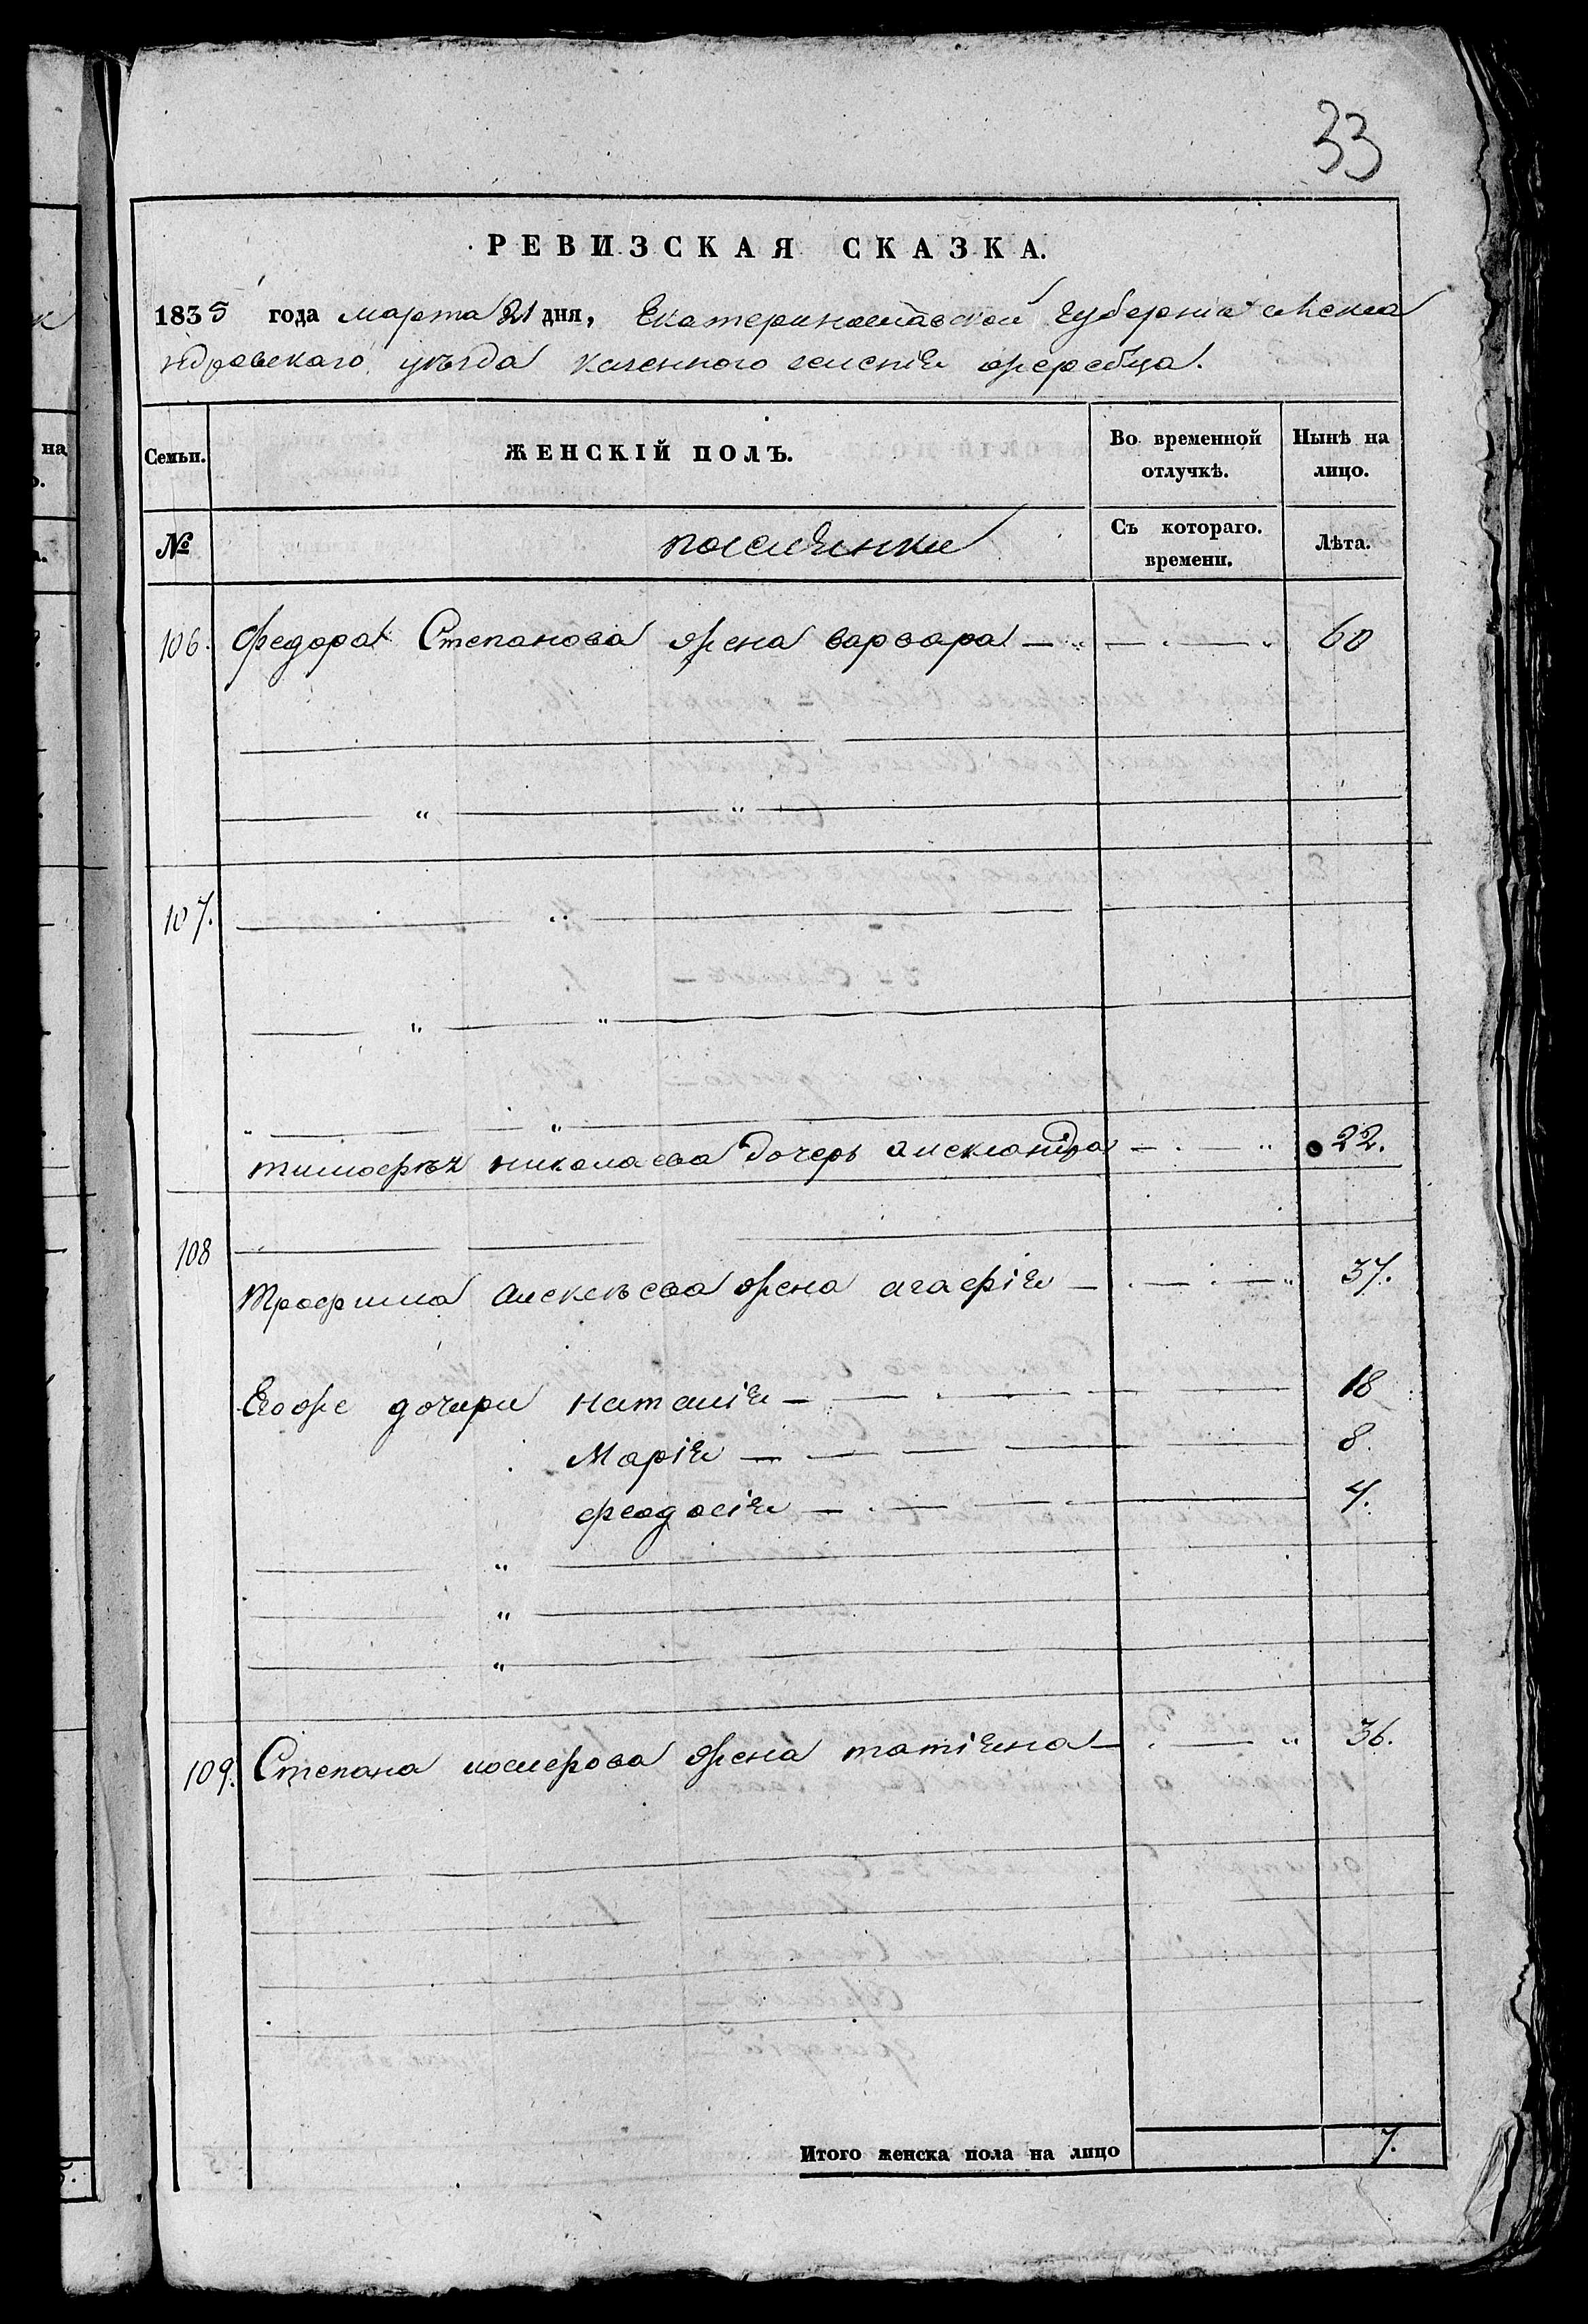 33
РЕВИЗСКАЯ СКАЗКА.
1835 года марта 21 дня, Екатеринославской губерніи Алекса
ндровскаго уѣзда казенного селенія жеребца.
Семьи. ЖЕНСКІЙ ПОЛЪ. Во временной отлучкѣ. Нынѣ на лицо.
№ поселянки Съ котораго. времени. Лѣта.
106. Федора Степанова жена варвара — 60
107.
тимофѣя николаева дочерь александра — 22.
108
Трофима алексѣева жена агафія — 37.
Егоже дочери наталія — 18
Марія — 8.
феодосія — 4.
109. Степана жена татіяна — 36.
Итого женска пола на лицо 7.
на